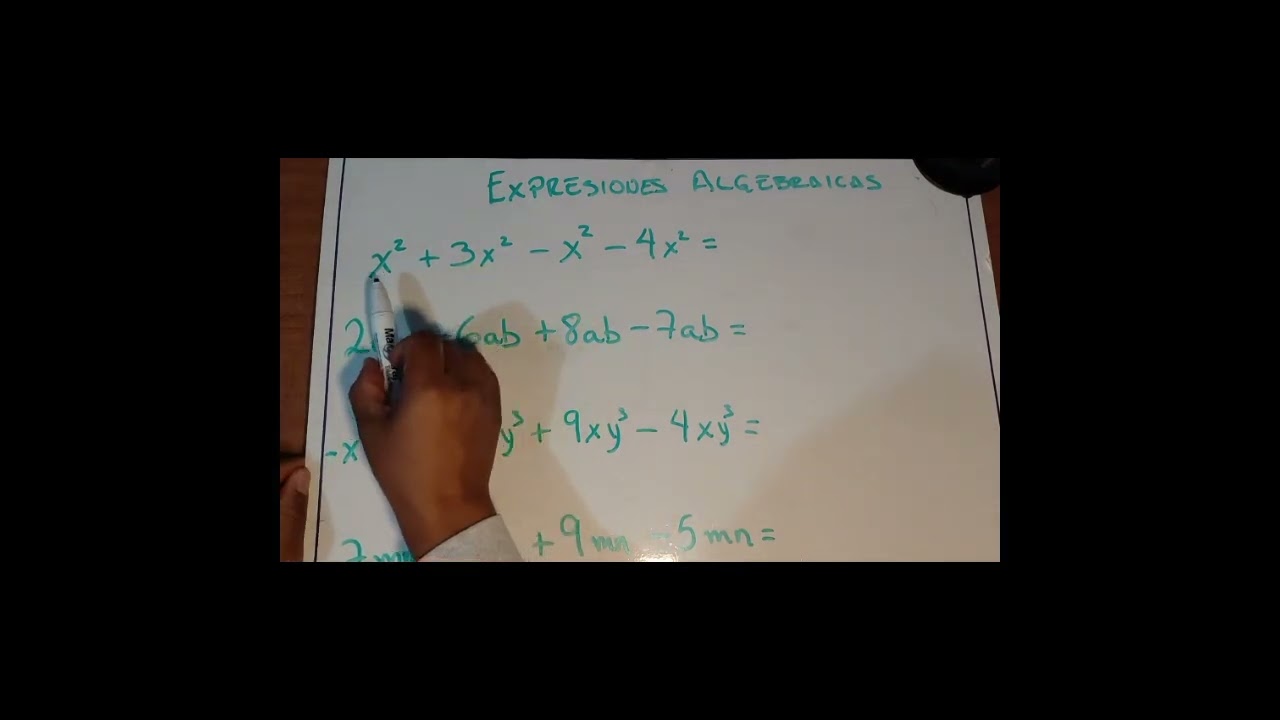 EXPRESIONES ALGEBRAICAS
x² + 3x² - x² - 4x² =
2 6ab + 8ab - 7ab =
-x y³ + 9xy³ - 4xy³ =
7m + 9mn - 5mn =